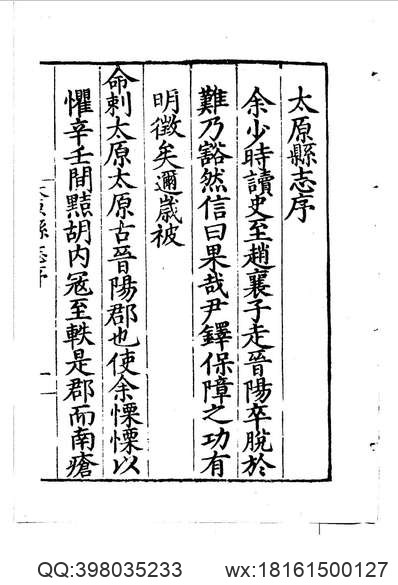 太原縣志序
余少時讀史至趙襄子走晉陽卒脫於
難乃豁然信曰果哉尹鐸保障之功有
明徵矣邇歲被
命刺太原太原古晉陽郡也使余慄慄以
懼辛壬間黠胡内寇至軼是郡而南瘡
太原縣志序
QQ:398035233 wx:18161500127